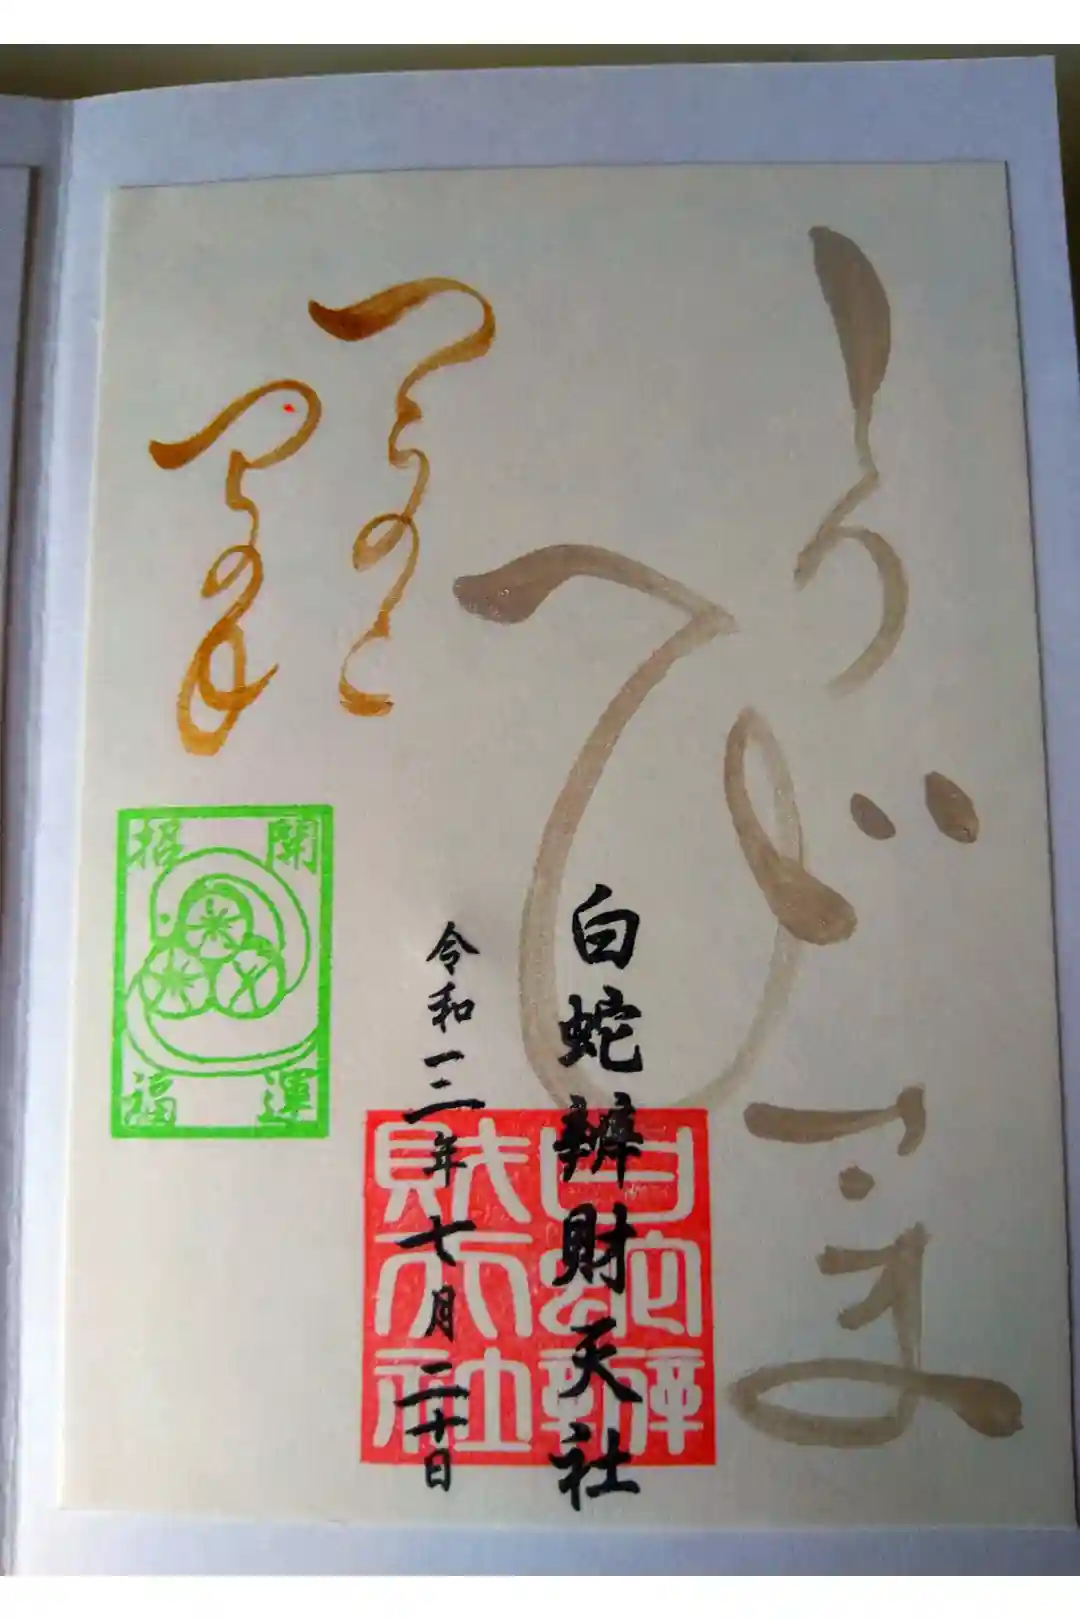 しろ
へび
さま
つちのこ
白蛇辨財天社
令和三年七月二十日
開運
招福
白蛇辨
財天社